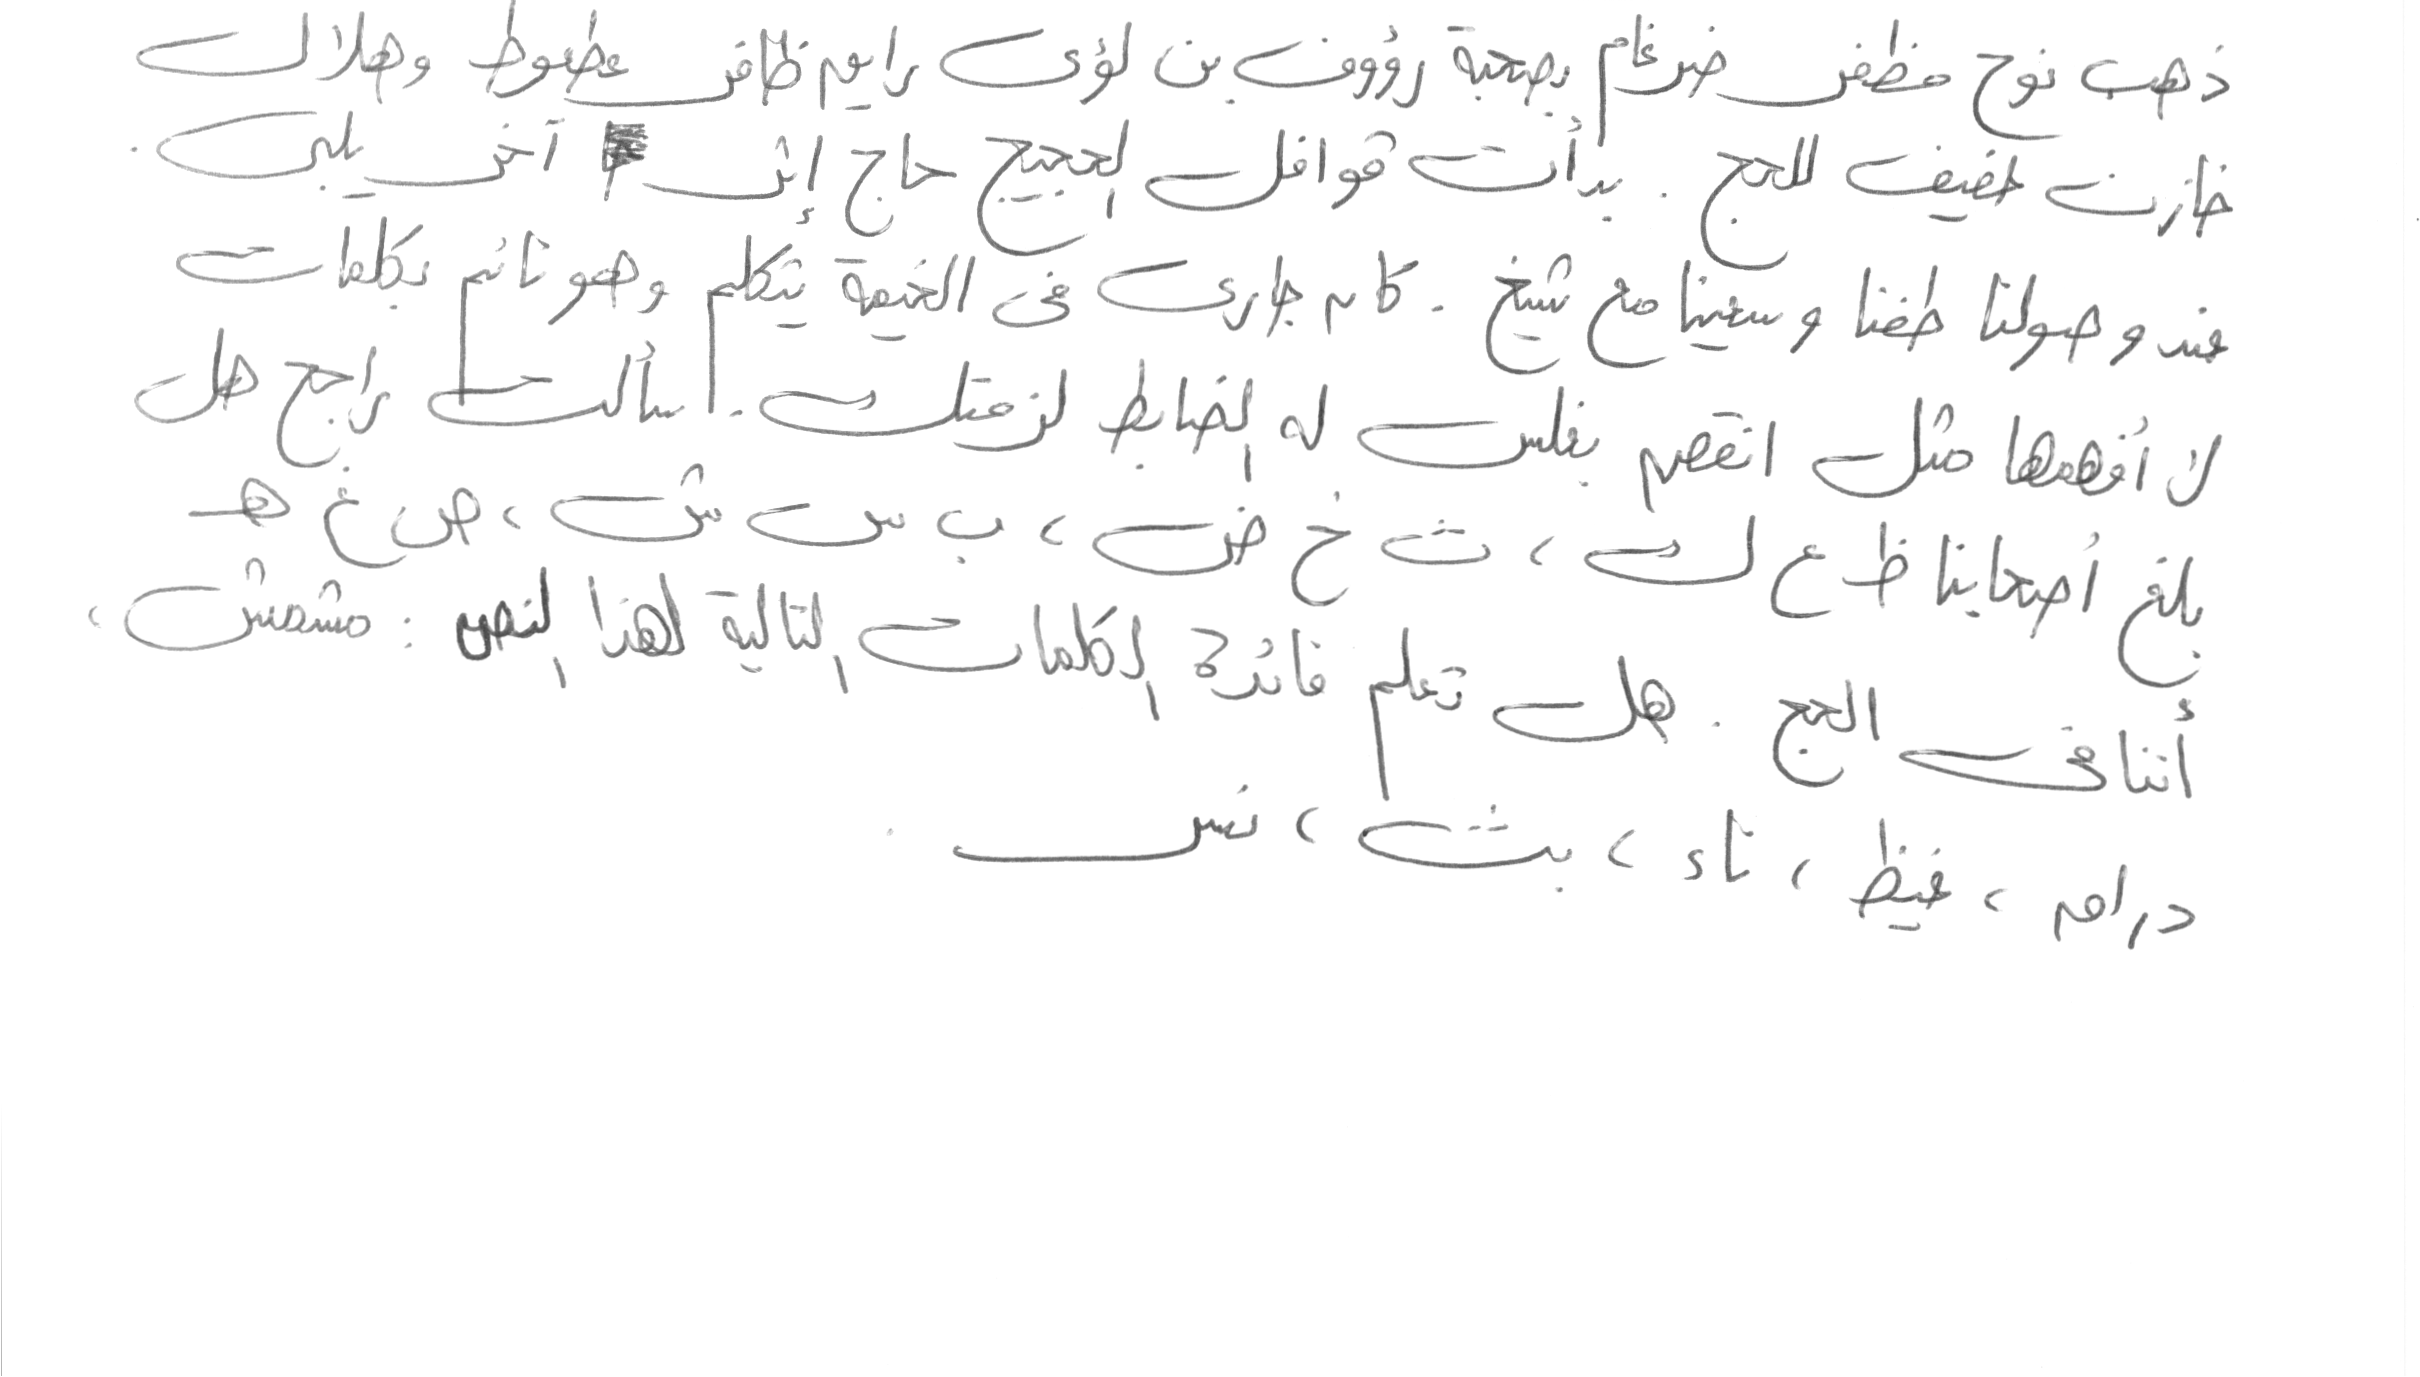 ذهب نوح مظفر ضرغام بصحبة رؤوف بن لؤى راجى ظافر عطوط وهلال
خازن خفيف للحج . بدأت قوافل الحجيج حاج إثر آخر يلبى .
عند وصولنا طفنا وسعينا مع شيخ . كان جارى فى الخيمة يتكلم وهو نائم بكلمات
لا أفهمها مثل انقصم بغلس له الضابط لزمتك . سألت راجح هل
بلغ أصحابنا ظ ع ك ، ث خ ض ، ب س ش ، ص غ هـ
أننا فى الحج . هل تعلم فائدة الكلمات التالية لهذا النص : مشمش ،
دراهم ، غيظ ، ناء ، بث ، نسر .